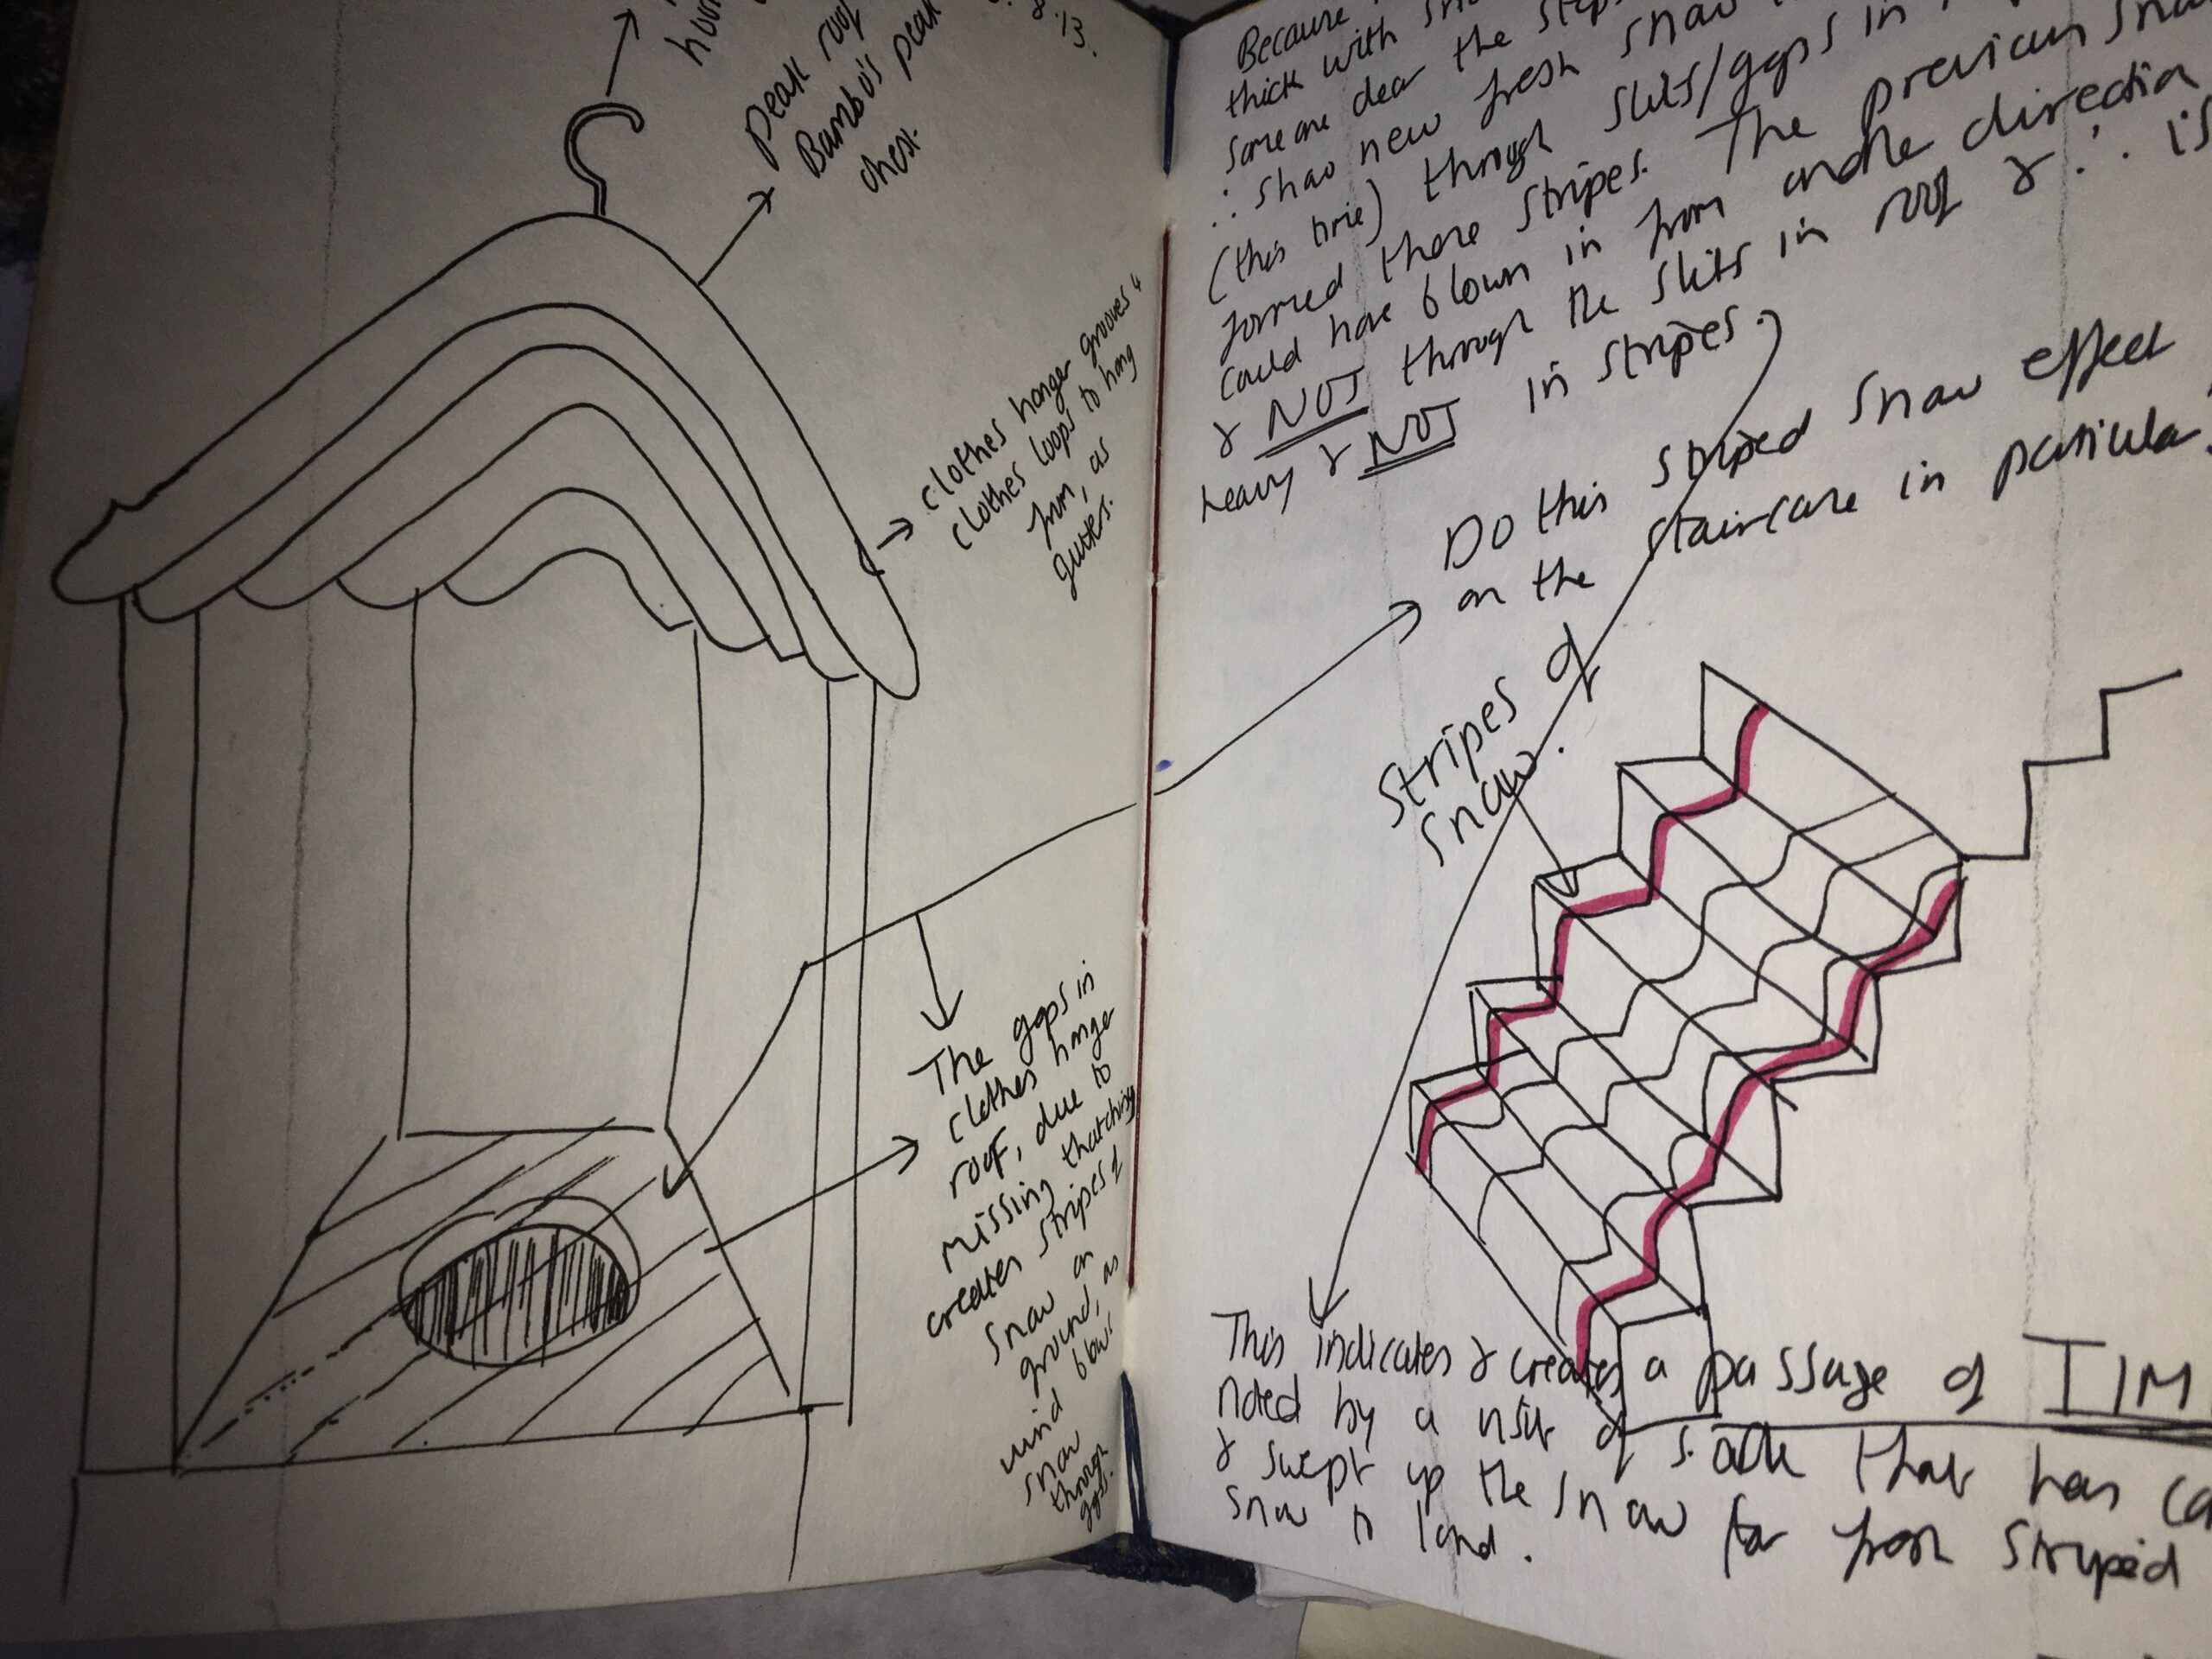 peak roof
Bambo's peak
chest.
8.13.
clothes hanger grooves &
clothes loops to hang
from, as
gutters.
The gaps in
clothes hanger
roof, due to
missing thatching
creates stripes of
snow on
ground, as
wind blows
snow
through
gaps.
Because
thick with
someone clear the steps
∴ shao new fresh snow
(this time) through slits/gaps in
formed these stripes. The previous snow
could have blown in from another direction
& NOT through the slits in roof & ∴ is
heavy & NOT in stripes.
Do this striped snow effect
on the staircase in particular
stripes of
snow.
This indicates & creates a passage of TIM
noted by a of that has
& swept up the snow for fresh striped
snow to land.